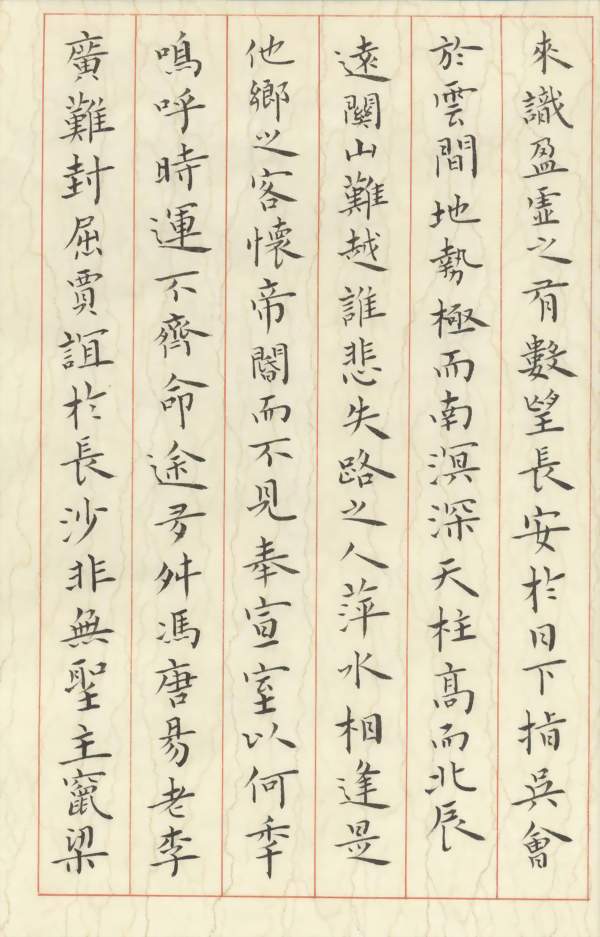 來識盈虛之有數望長安於日下指吳會
於雲間地勢極而南溟深天柱高而北辰
遠關山難越誰悲失路之人萍水相逢是
他鄉之客懷帝閽而不見奉宣室以何年
嗚呼時運不齊命途多舛馮唐易老李
廣難封屈賈誼於長沙非無聖主竄梁